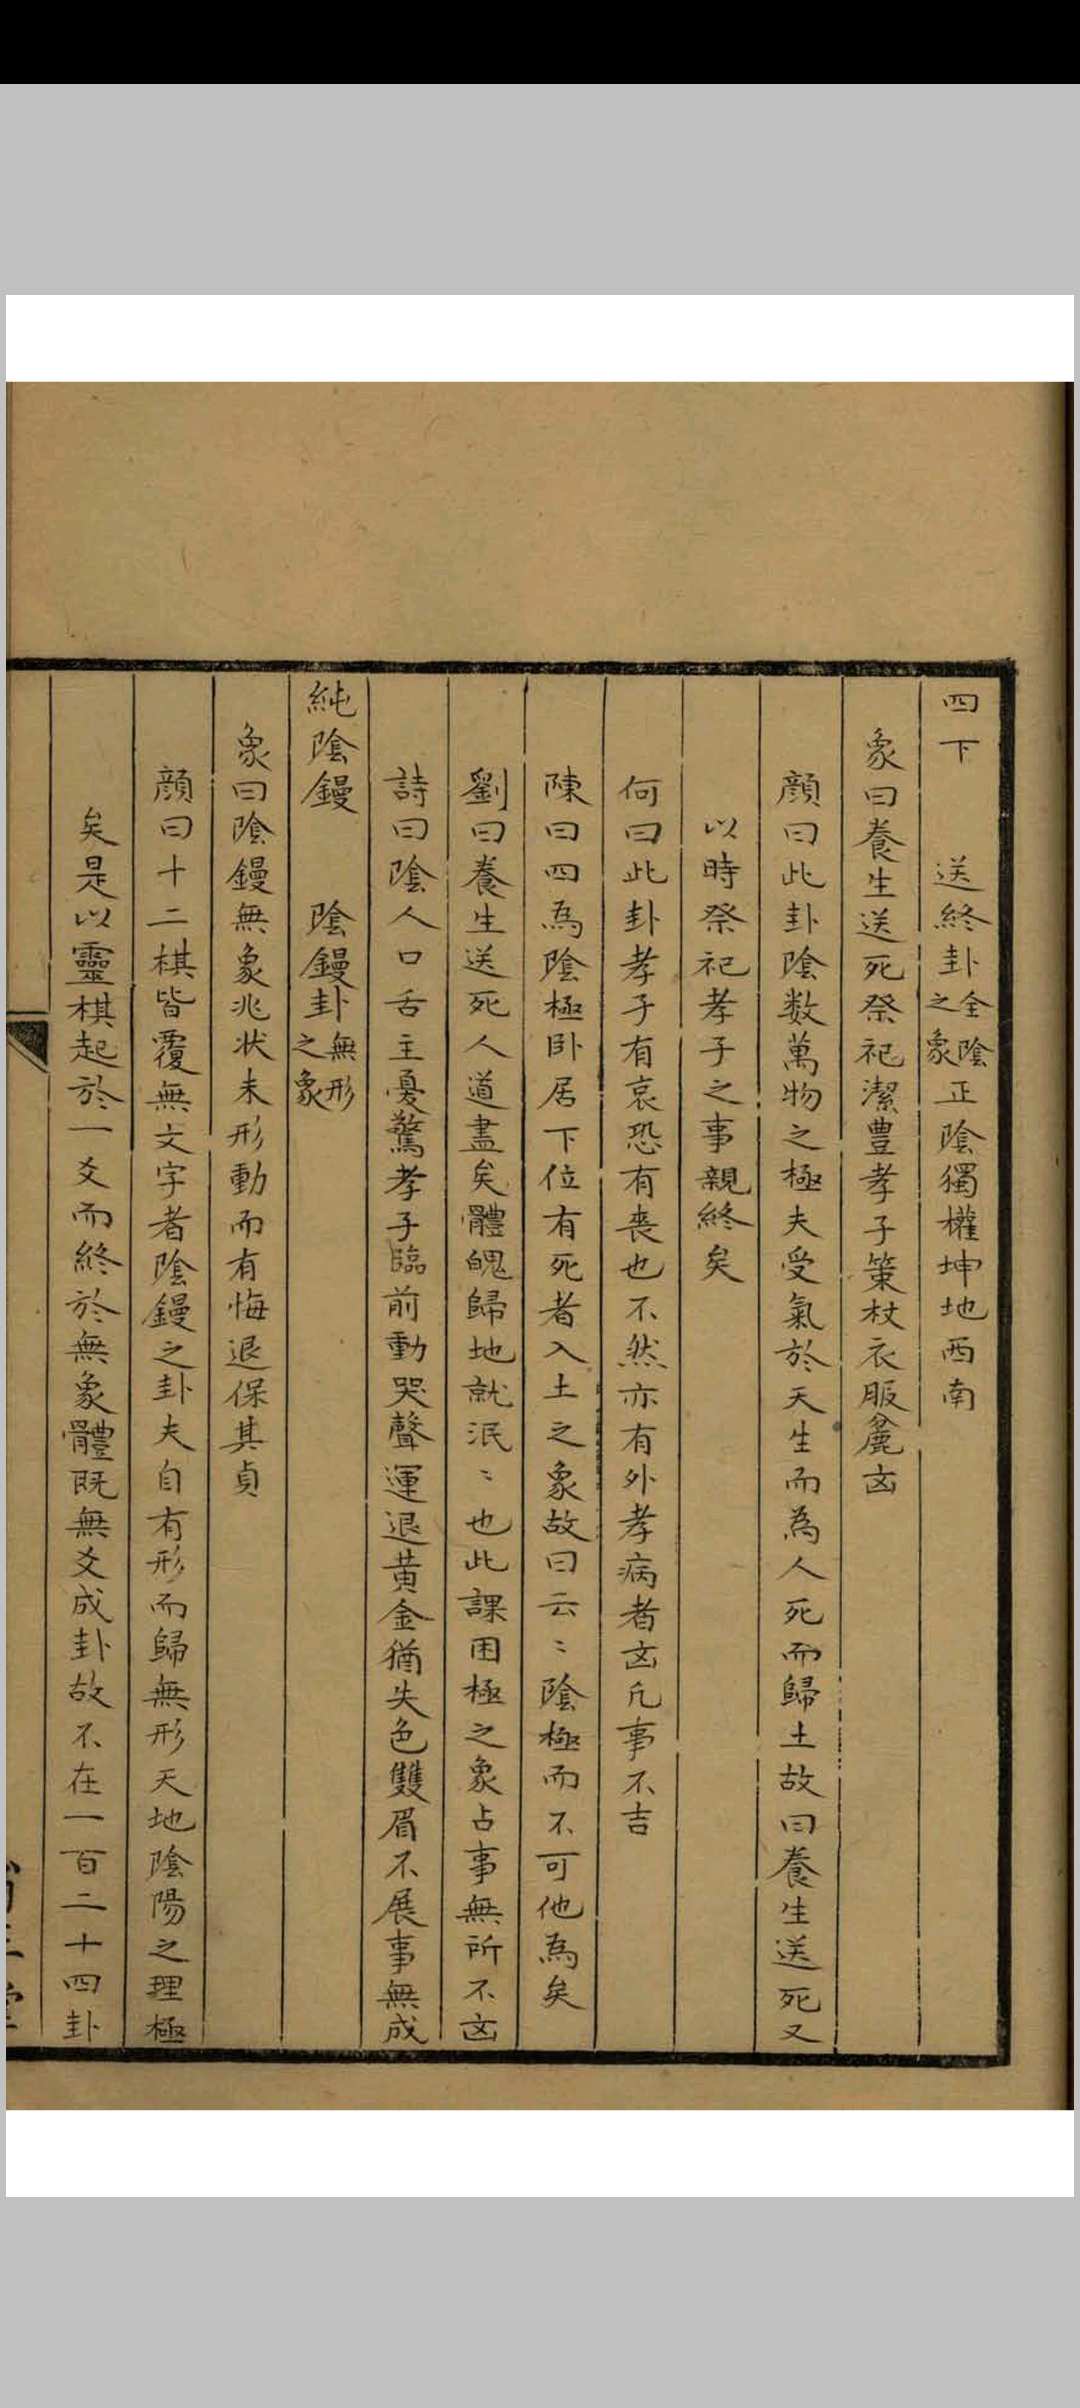 四下　送終卦全陰之象正陰獨權坤地西南
象曰養生送死祭祀潔豊孝子策杖衣服麁㐫
顔曰此卦陰数萬物之極夫受氣於天生而為人死而歸土故曰養生送死又
以時祭祀孝子之事親終矣
何曰此卦孝子有哀恐有喪也不然亦有外孝病者㐫凡事不吉
陳曰四爲陰極卧居下位有死者入土之象故曰云〻陰極而不可他爲矣
劉曰養生送死人道盡矣體魄歸地就泯〻也此課困極之象占事無所不㐫
詩曰陰人口舌主憂驚孝子臨前動哭聲運退黄金猶失色雙眉不展事無成
純陰鏝　陰鏝卦無形之象
象曰陰鏝無象兆状未形動而有悔退保其貞
顔曰十二棋皆覆無文字者陰鏝之卦夫自有形而歸無形天地陰陽之理極
矣是以靈棋起於一爻而終於無象體既無爻成卦故不在一百二十四卦